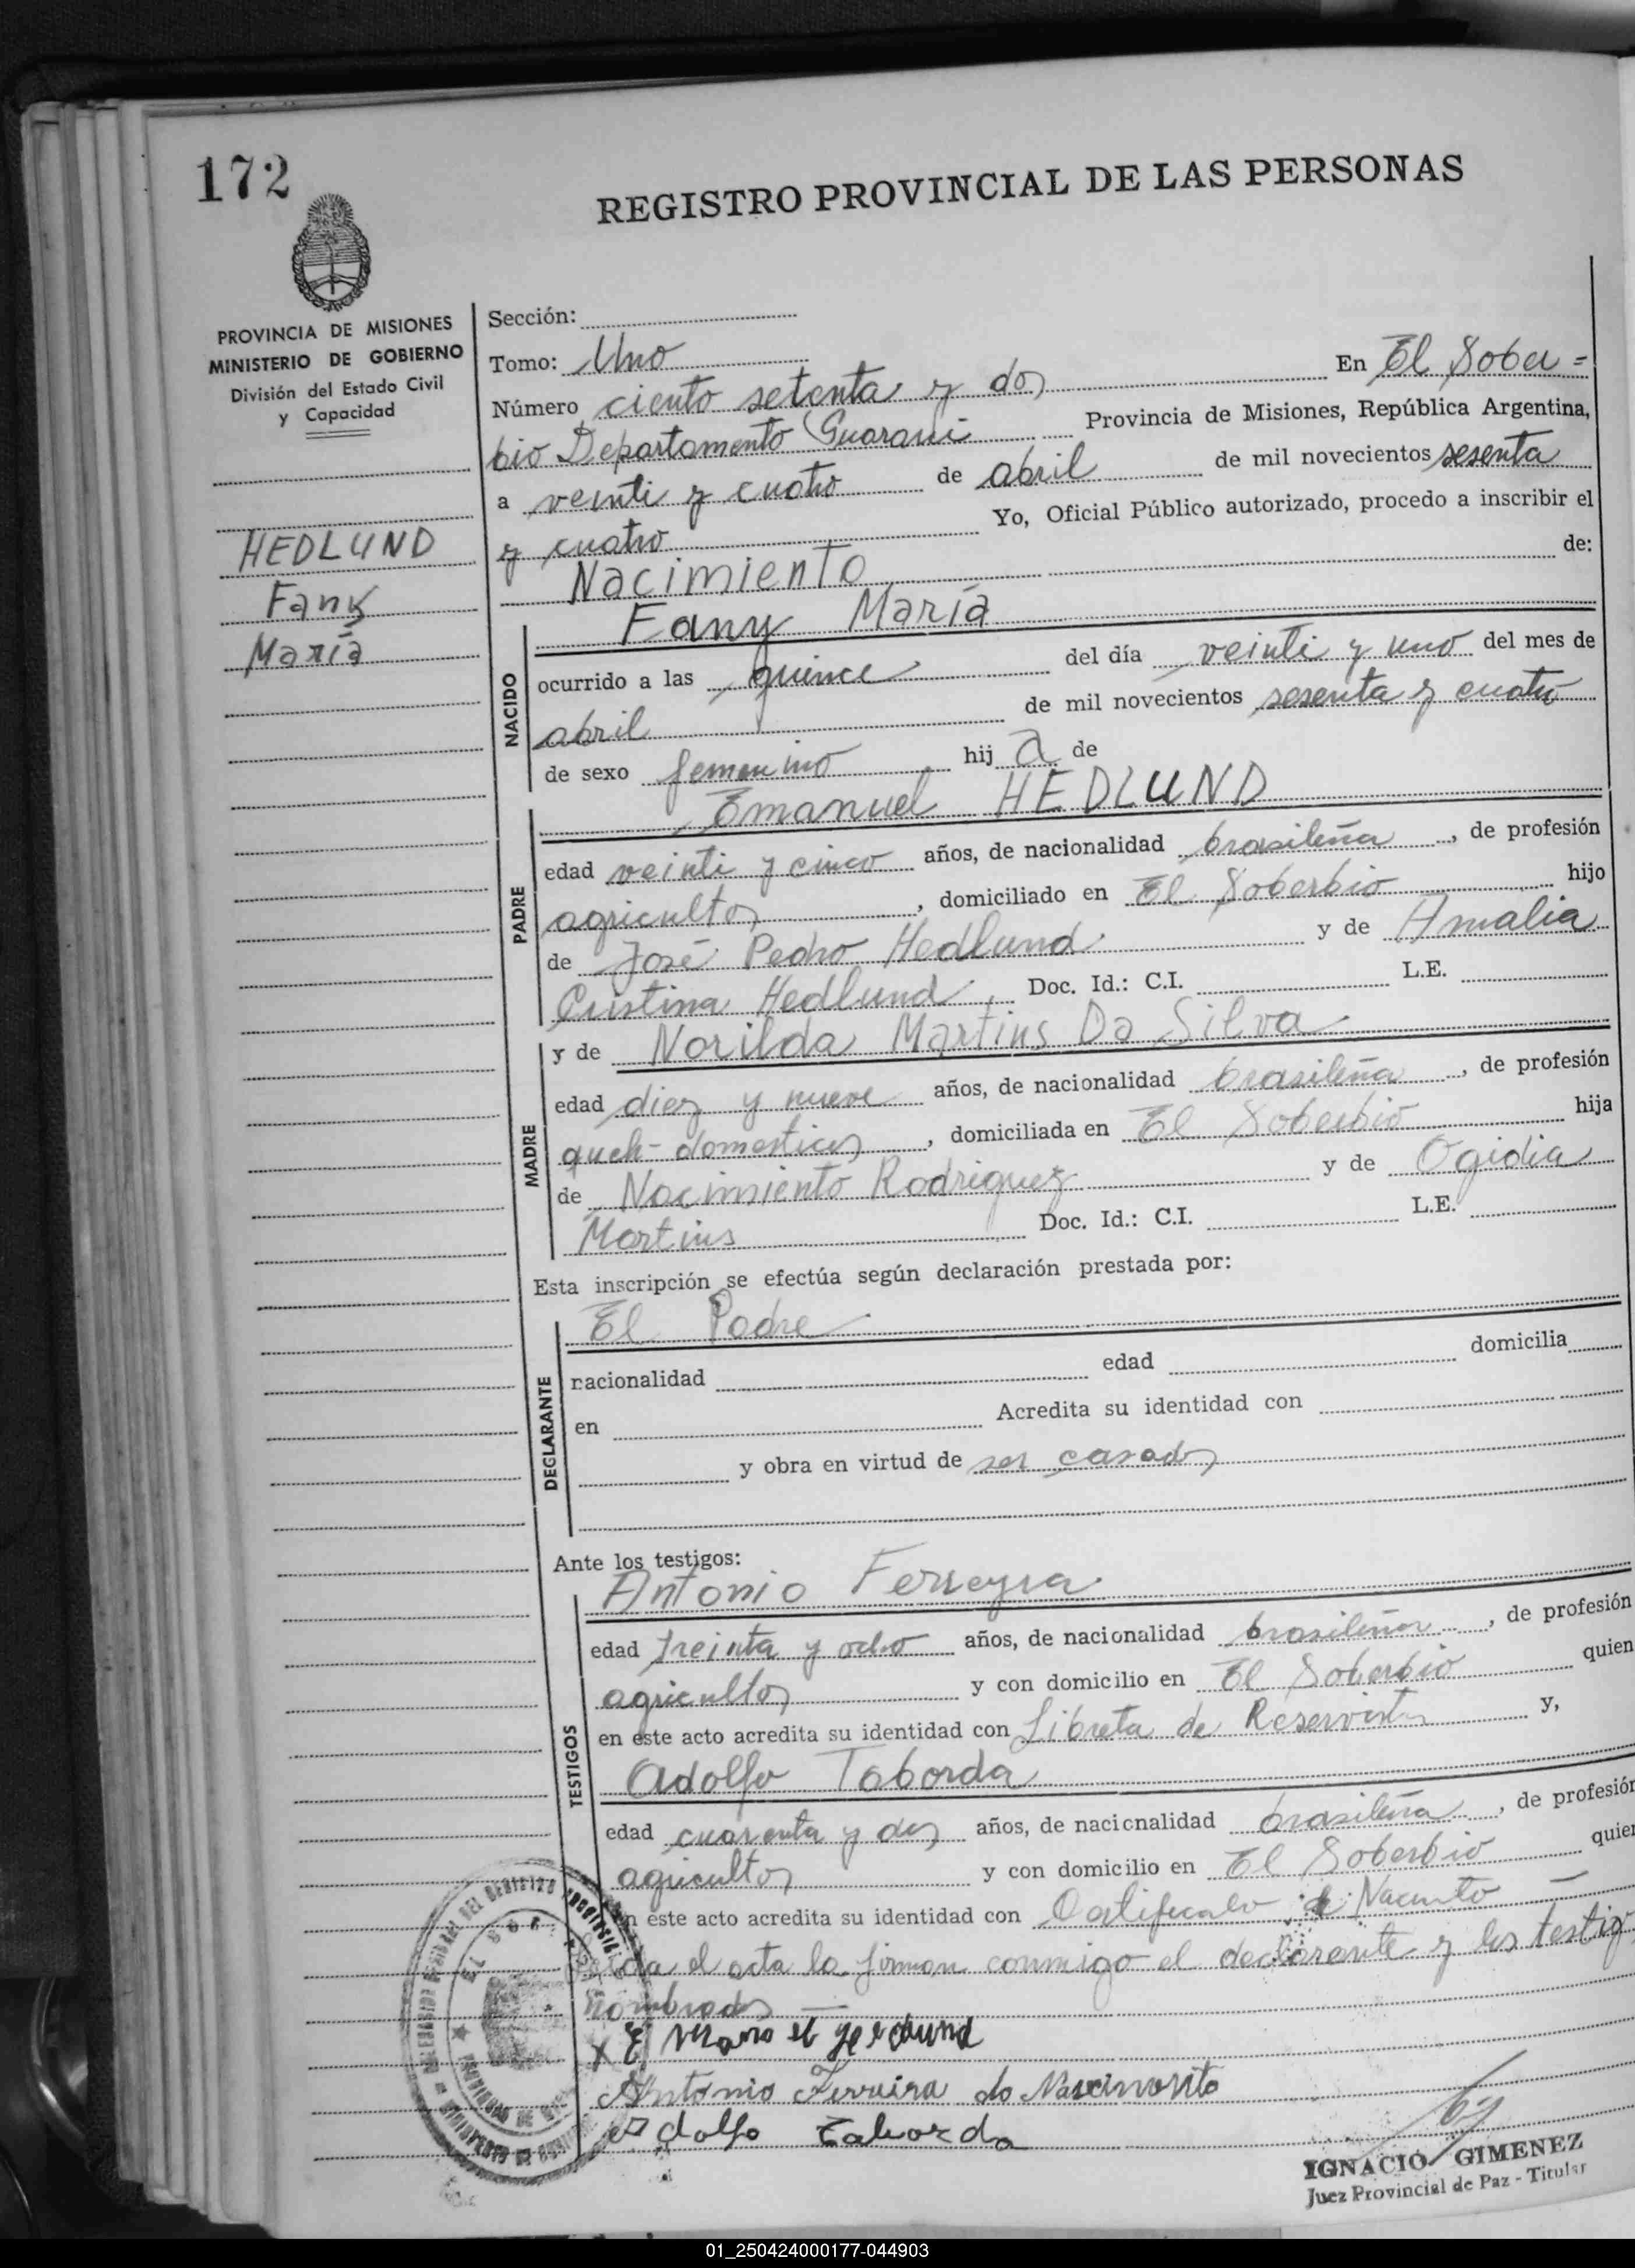 172
REGISTRO PROVINCIAL DE LAS PERSONAS
PROVINCIA DE MISIONES
MINISTERIO DE GOBIERNO
División del Estado Civil
y Capacidad
HEDLUND
Fany
María
Sección:
Tomo: Uno
Número ciento setenta y dos En El Sober =
bio Departamento Guarani Provincia de Misiones, República Argentina,
a veinti y cuatro de abril de mil novecientos sesenta
y cuatro Yo, Oficial Público autorizado, procedo a inscribir el
Nacimiento de:
NACIDO
Fany María
ocurrido a las quince del día veinti y uno del mes de
abril de mil novecientos sesenta y cuatro
de sexo femenino hij a de
PADRE
Emanuel HEDLUND
edad veinti y cinco años, de nacionalidad brasileña, de profesión
agricultor, domiciliado en El Soberbio hijo
de José Pedro Hedlund y de Amalia
Cristina Hedlund, Doc. Id.: C.I. L.E.
MADRE
y de Norilda Martins Da Silva
edad diez y nueve años, de nacionalidad brasileña, de profesión
queh- domesticos, domiciliada en El Soberbio hija
de Nacimiento Rodriguez y de Ogidia
Martins Doc. Id.: C.I. L.E.
Esta inscripción se efectúa según declaración prestada por:
DECLARANTE
El Padre
racionalidad edad domicilia
en Acredita su identidad con
y obra en virtud de ser casado
Ante los testigos:
TESTIGOS
Antonio Ferreyra
edad treinta y ocho años, de nacionalidad brasileña, de profesión
agricultor y con domicilio en El Soberbio quien
en este acto acredita su identidad con Libreta de Reservista y,
Adolfo Taborda
edad cuarenta y dos años, de nacicnalidad brasileña, de profesión
agricultor y con domicilio en El Soberbio quien
en este acto acredita su identidad con de Nacmto
Leida el acta la firman conmigo el declarante y los testig
nombrados
X
Antonio Ferreira do Nascimento
Adolfo Taborda
IGNACIO GIMENEZ
Juez Provincial de Paz - Titular
01_250424000177-044903